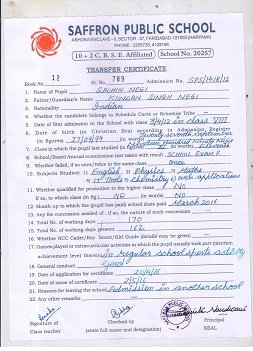 SAFFRON PUBLIC SCHOOL
ASHOKA ENCLAVE - II, SECTOR - 37, FARIDABAD-121003 (HARYANA)
PHONE : 2255735, 4128199
10 + 2 C. B. S. E. Affiliated School No. 20257
TRANSFER CERTIFICATE
Book No. 12 Sl. No. 789 Admission No. SPS/1418/12
1. Name of Pupil SACHIN NEGI
2. Father/Guardian's Name KUNDAN SINGH NEGI
3. Nationality Indian
4. Whether the candidate belongs to Schedule Caste or Schedule Tribe
5. Date of first admission in the School with class 2/4/12 in class VIII
6. Date of birth (in Christian Era) according to Admission Register
(in figures) 27/09/99 (in words) Twenty seventh September
Nineteen hundred Ninety Nine
7. Class in which the pupil last studied (in words) Eleventh
8. School/Board Annual examination last taken with result SCHOOL EXAM F
9. Whether failed, if so once/twice in the same class once
10. Subjects Studied : 1) English 2) Physics 3) Maths
4) Tools 5) Chemistry 6) Web applications
11. Whether qualified for promotion to the higher class No
If so, to which class (in fig.) NO (in words) NO
12. Month up to which the (pupil has paid) school dues paid March 2016
13. Any fee concession availed of : if so, the nature of such concession
14. Total No. of working days : 170
15. Total No. of working days present 162
16. Whether NCC Cadet/Boy Scout/Girl Guide (details may be given)
17. Games played or extracurricular activities in which the pupil usually took part (mention
achievement level therein) in regular school sports activity
18. General conduct Good
19. Date of application for certificate 20/4/16
20. Date of issue of certificate 2/5/16
21. Reasons for leaving the school Admission in another school
22. Any other remarks
Signature of
Class teacher
Checked by
(state full name and designation)
Principal
SEAL